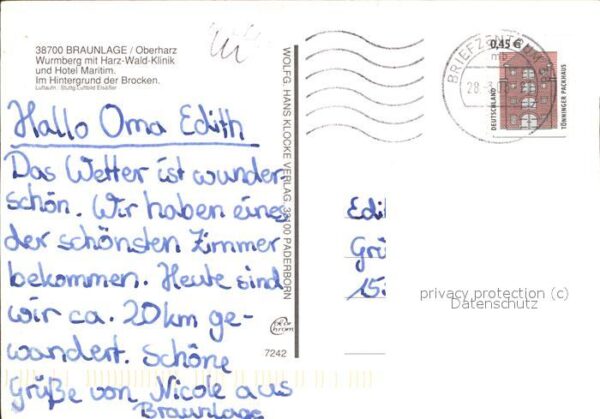 38700 BRAUNLAGE / Oberharz
Wurmberg mit Harz-Wald-Klinik
und Hotel Maritim.
Im Hintergrund der Brocken.
Luftaufn.: Stuttg. Luftbild Elsäßer
Hallo Oma Edith
Das Wetter ist wunder-
schön. Wir haben eines
der schönsten Zimmer
bekommen. Heute sind
wir ca. 20km ge-
wandert. Schöne
Grüße von Nicole aus
Braunlage
WOLFG. HANS KLOCKE VERLAG, 33100 PADERBORN
7242
BRIEFZENTRUM 38
mb
0,45 €
DEUTSCHLAND
TÖNNINGER PACKHAUS
Edi
Grü
15
privacy protection (c)
Datenschutz